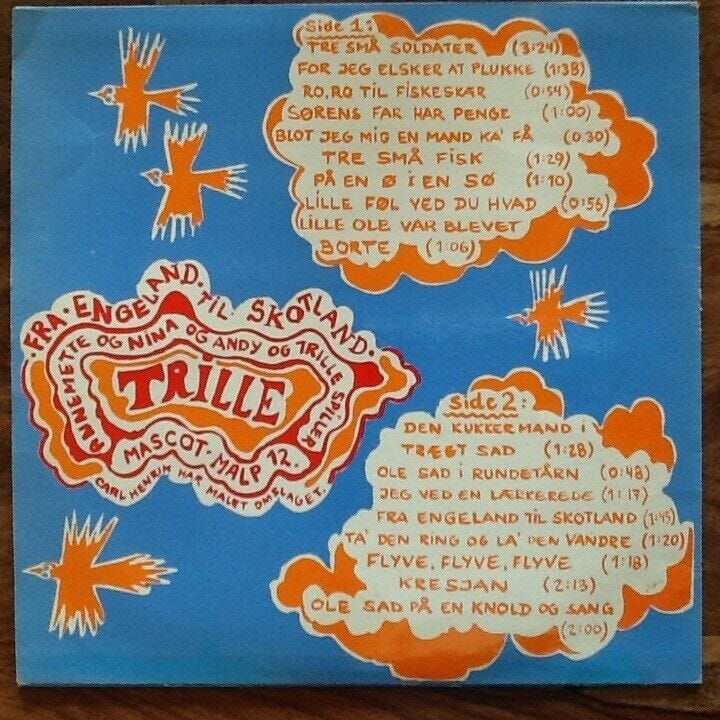 Side 1:
TRE SMÅ SOLDATER (3:24)
FOR JEG ELSKER AT PLUKKE (1:38)
RO, RO TIL FISKESKÆR (0:54)
SØRENS FAR HAR PENGE (1:00)
BLOT JEG MIG EN MAND KA' FÅ (0:30)
TRE SMÅ FISK (1:29)
PÅ EN Ø I EN SØ (1:10)
LILLE FØL VED DU HVAD (0:56)
LILLE OLE VAR BLEVET
BORTE (1:06)
FRA · ENGELAND · TIL · SKOTLAND ·
ANNEMETTE OG NINA OG ANDY OG TRILLE SPILLER
TRILLE
MASCOT · MALP 12.
CARL HENRIK HAR MALET OMSLAGET.
Side 2:
DEN KUKKERMAND I
TRÆET SAD (1:28)
OLE SAD I RUNDETÅRN (0:48)
JEG VED EN LÆRKEREDE (1:17)
FRA ENGELAND TIL SKOTLAND (1:45)
TA' DEN RING OG LA' DEN VANDRE (1:20)
FLYVE, FLYVE, FLYVE (1:18)
KRESJAN (2:13)
OLE SAD PÅ EN KNOLD OG SANG
(2:00)